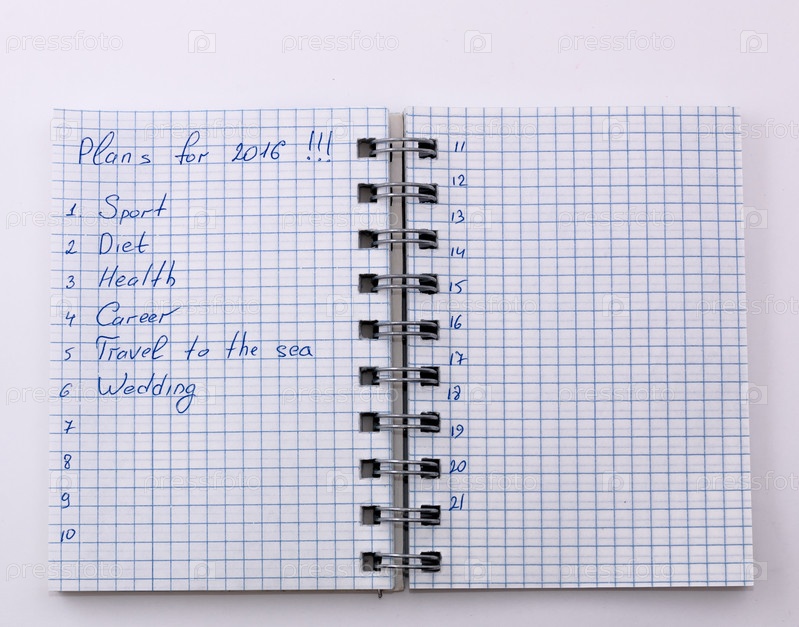 Plans for 2016 !!!
1. Sport
2 Diet
3 Health
4 Career
5 Travel to the sea
6 Wedding
7
8
9
10
11
12
13
14
15
16
17
18
19
20
21
pressfoto